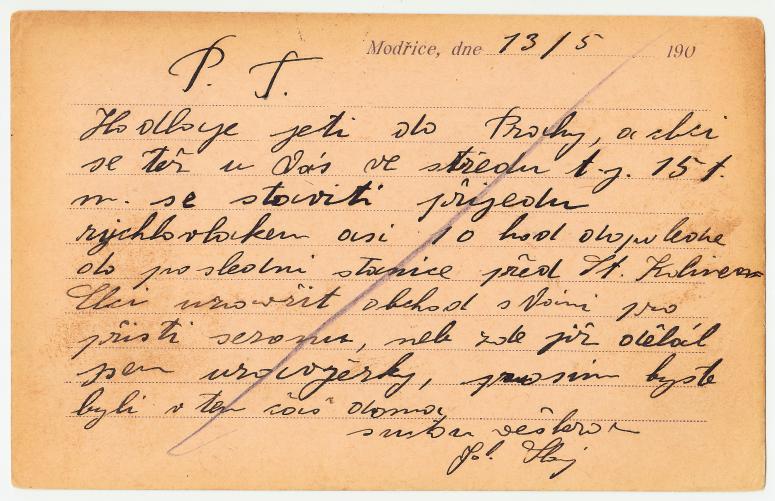 Modřice, dne 13/5 190
P. T.
Hodlaje jeti do Prahy, a chci
se též u Vás ve středu t. j. 15 t.
m. se staviti přijedu
rychlovlakem asi 10 hod dopoledne
do poslední stanice před St. Kolinem
Chci uzavřit obchod s Vámi pro
přisti sezonu, neb zde již dělal
sem uzavěrky, prosim byste
byli v ten čas doma,
s